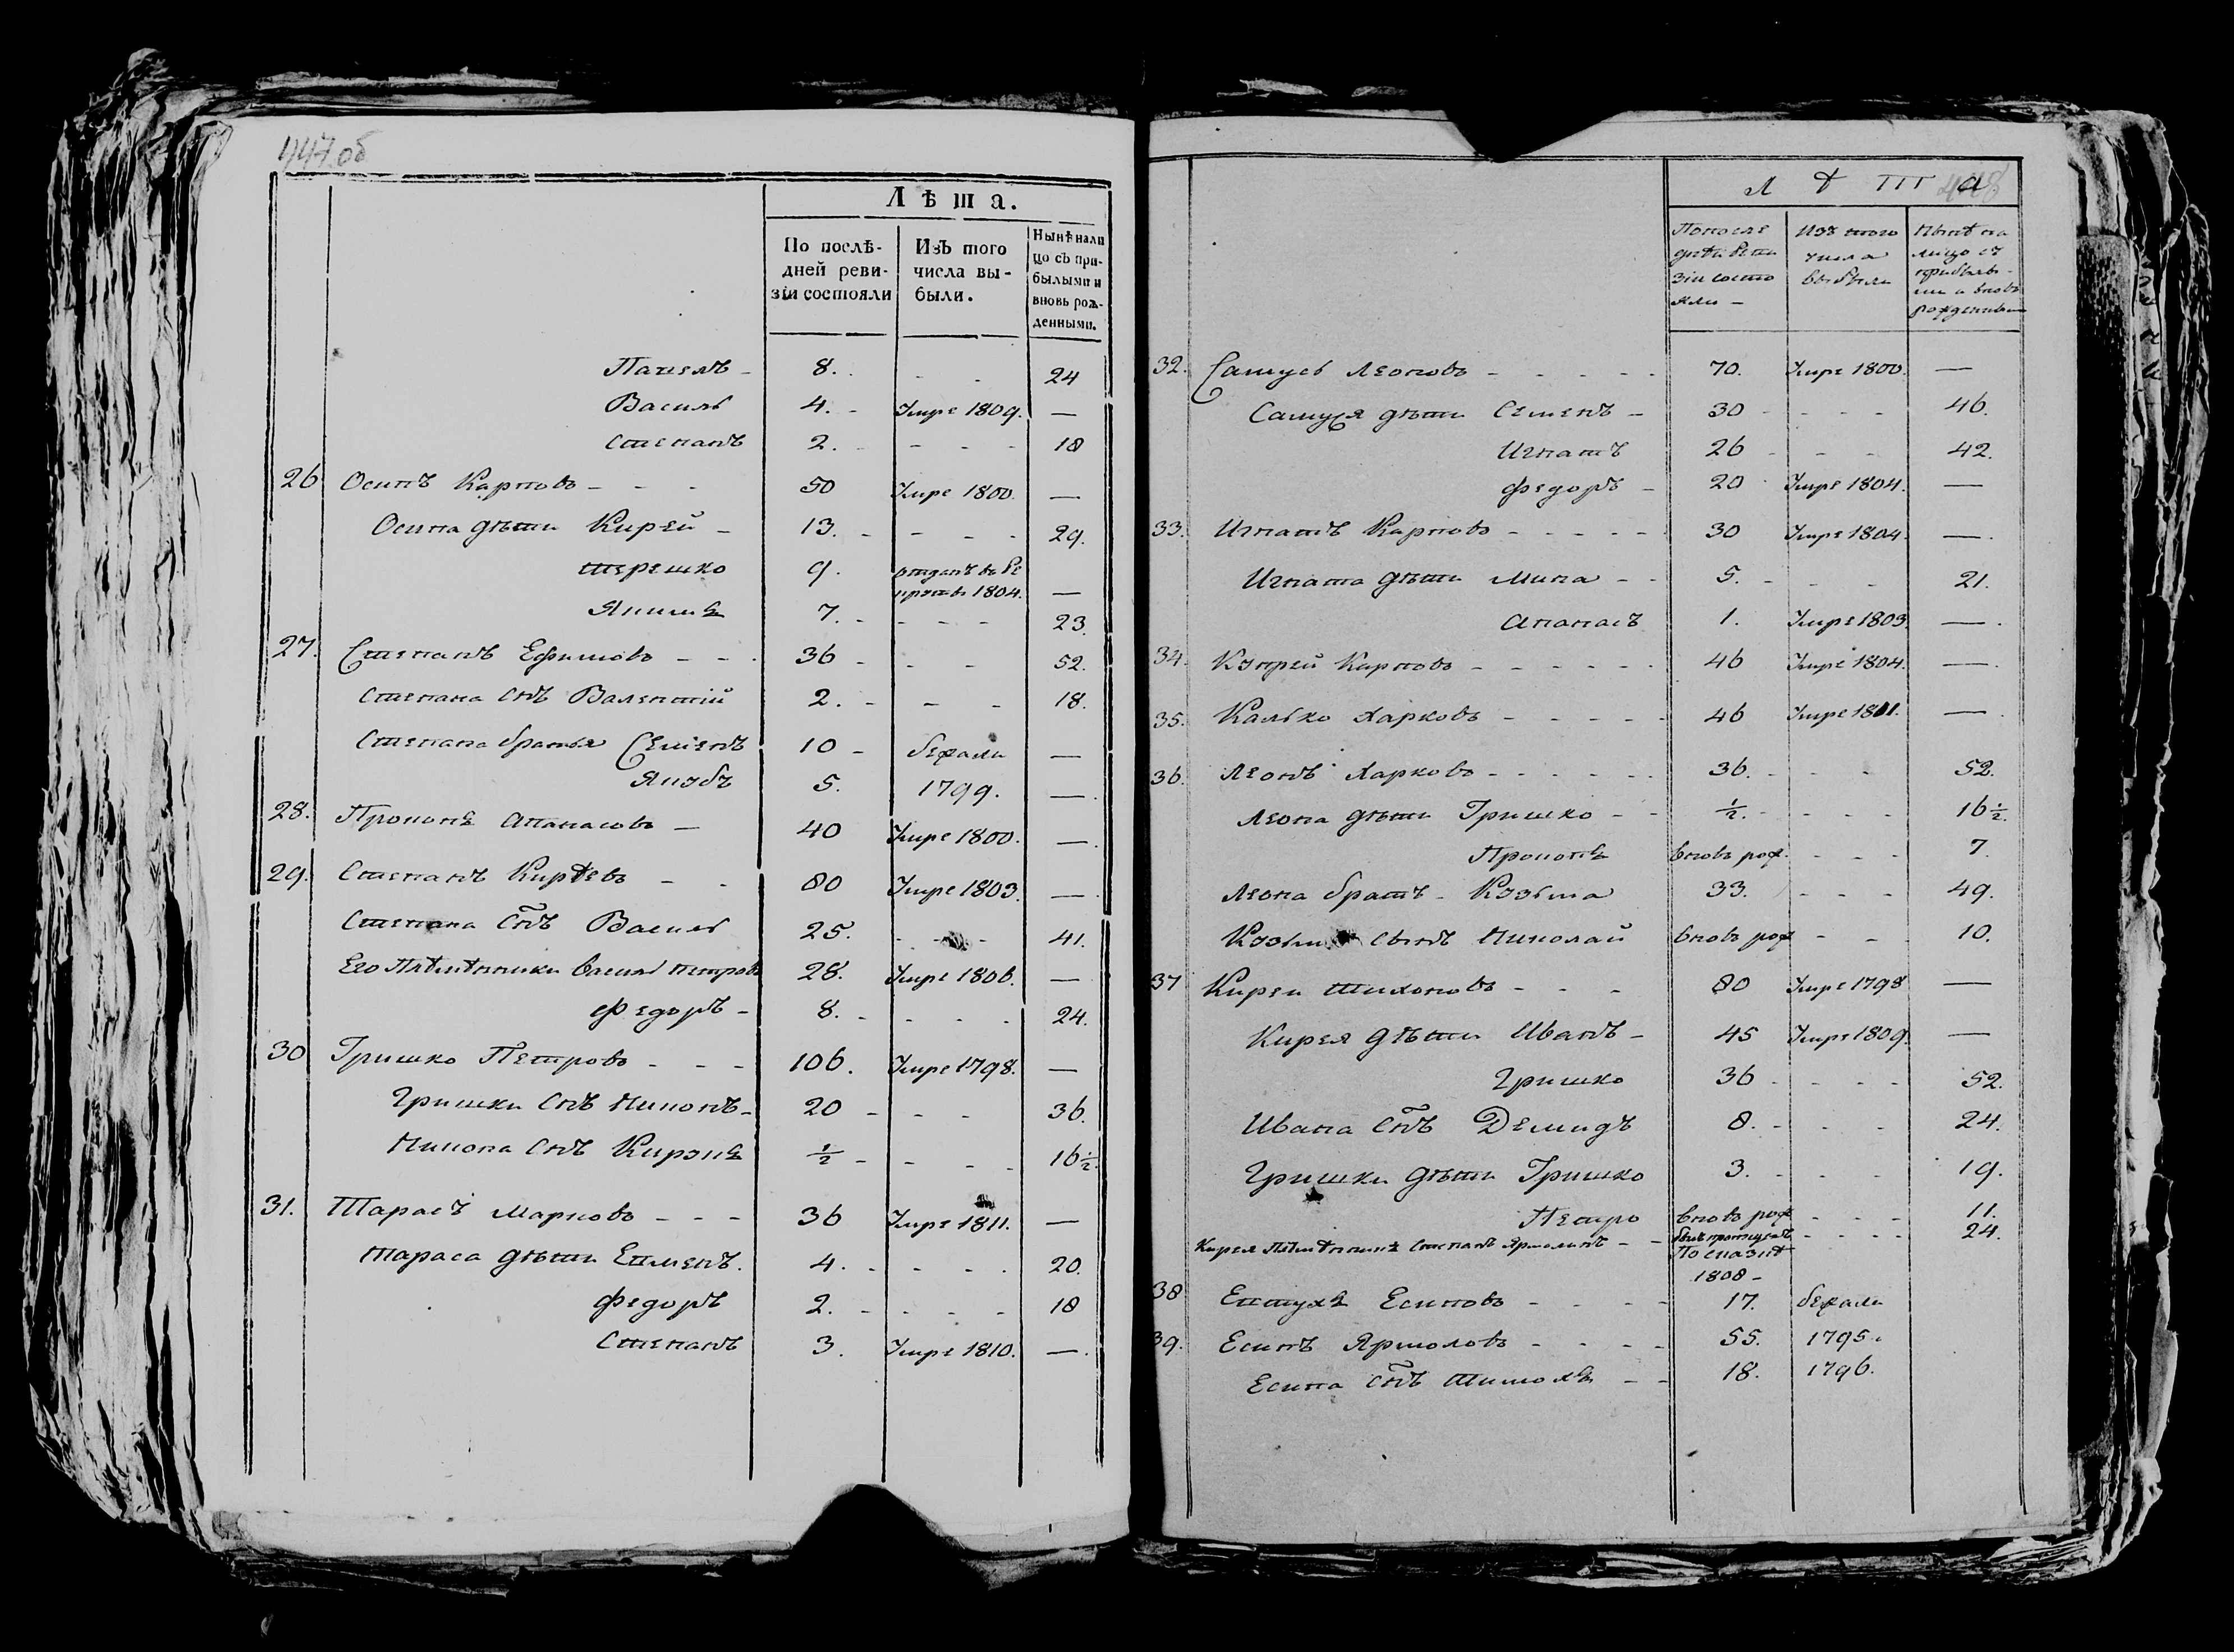 447 об
Лѣта.
По послѣ-
дней реви-
зіи состояли
Изъ того
числа вы-
были.
Нынѣ нали
цо съ при-
былыми и
вновь рож-
денными.
Пахомъ - 8. - - 24
Василь 4. - Умре 1809. —
Степанъ 2. - - - 18
26 Осипъ Карповъ - - - 50 Умре 1800. —
Осипа дѣти Кирей - 13. - - - - 29.
терешко 9. отданъ въ Ре
круты 1804. —
Якимъ 7. - - - - 23.
27. Степанъ Ефимовъ - - - 36 - - - 52.
Степана снъ Валентій 2. - - - 18.
Степана братья Семенъ 10 - бежали —
Якубъ 5. 1799. —
28. Прокопъ Апанасовъ — 40 Умре 1800. —
29. Степанъ Кирѣевъ - - 80 Умре 1803. —
Степана снъ Василь 25. - - - 41.
Его Плѣмѣнники Василь петровъ 28. Умре 1806. —
Федоръ - 8. - - - - 24.
30 Гришко Петровъ - - - 106. Умре 1798. —
Гришки снъ Никонъ - 20 - - - 36.
Никона снъ Кирикъ ½ - - - - 16½.
31. Тарасъ Марковъ - - - 36 Умре 1811. —
Тараса дѣти Еxменъ. 4. - - - - 20.
Федоръ 2. - - - - 18
Степанъ 3. Умре 1810. —
448
Л Ѣ Т а
По послѣ
днѣй реви
зіи состо
яли —
Изъ того
числа
выбыли
Нынѣ на
лицо съ
прибылы-
ми и вновь
рожденным
32. Самусь Леоновъ - - - - - 70. Умре 1800. —
Самуся дѣти Семенъ - 30 - - - - 46.
Игнатъ 26 - - - 42.
Федоръ - 20 Умре 1804. —
33. Игнатъ Карповъ - - - - - 30 Умре 1804. —
Игната дѣти Мина - - 5. - - - 21.
Апанасъ 1. Умре 1803. —
34. Кондрей Карповъ - - - - - - 46 Умре 1804. —
35. Калько Харковъ - - - - - 46 Умре 1801. —
36. Леонъ Харковъ - - - - - - 36. - - - 52.
Леона дѣти Гришко - - ½. - - - - 16½.
Прокопъ вновь рож. - - - 7.
Леона братъ - Козьма 33. - - - 49.
Козьмы сынъ Николай вновь рож - - - 10.
37 Кирей Тихоновъ - - - 80 Умре 1798 —
Кирея дѣти Иванъ - 45 Умре 1809. —
Гришко 36 - - - - 52.
Ивана снъ Демидъ 8. - - - 24.
Гришки дѣти Гришко 3. - - - 19.
Петро вновь рож - - - 11.
Кирея Плѣмѣнникъ Степанъ Ярмолинъ - - былъ пропущенъ - - - - 24.
По сказкѣ
1808 -
38 Евтухъ Есиповъ - - - - 17. бежали
39. Есипъ Ярмоловъ - - - - 55. 1795.
Есипа снъ Тимохъ - - 18. 1796.